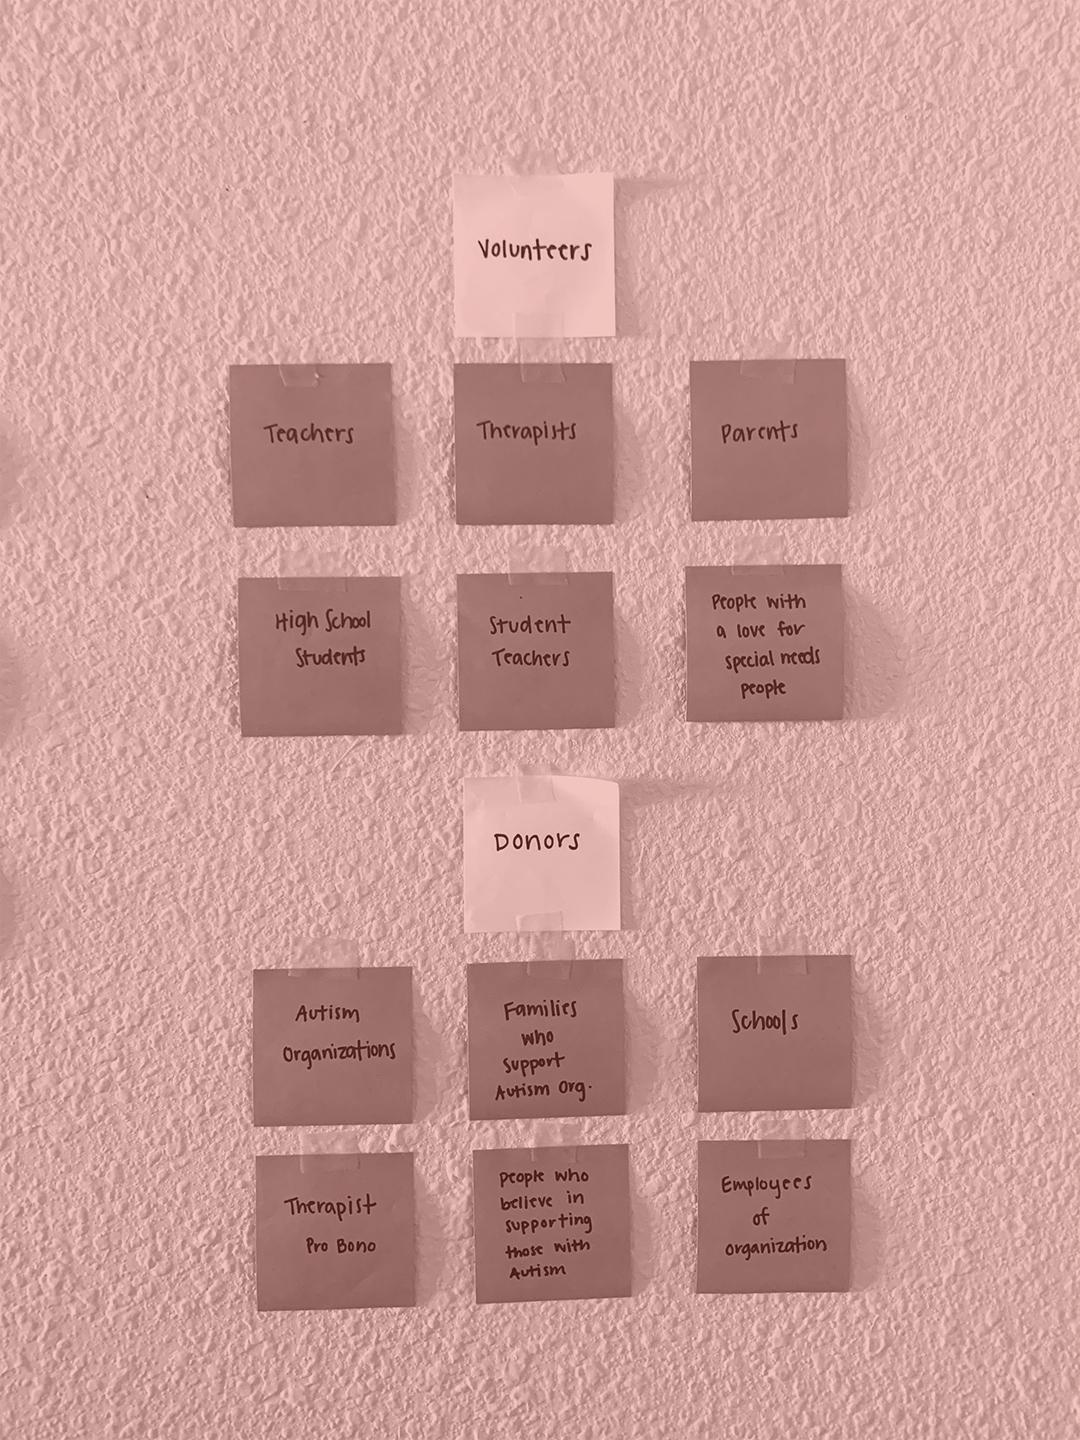 Volunteers
Teachers
Therapists
Parents
High School
Students
Student
Teachers
People with
a love for
special needs
people
Donors
Autism
Organizations
Families
who
support
Autism Org.
Schools
Therapist
Pro Bono
people who
believe in
supporting
those with
Autism
Employees
of
organization